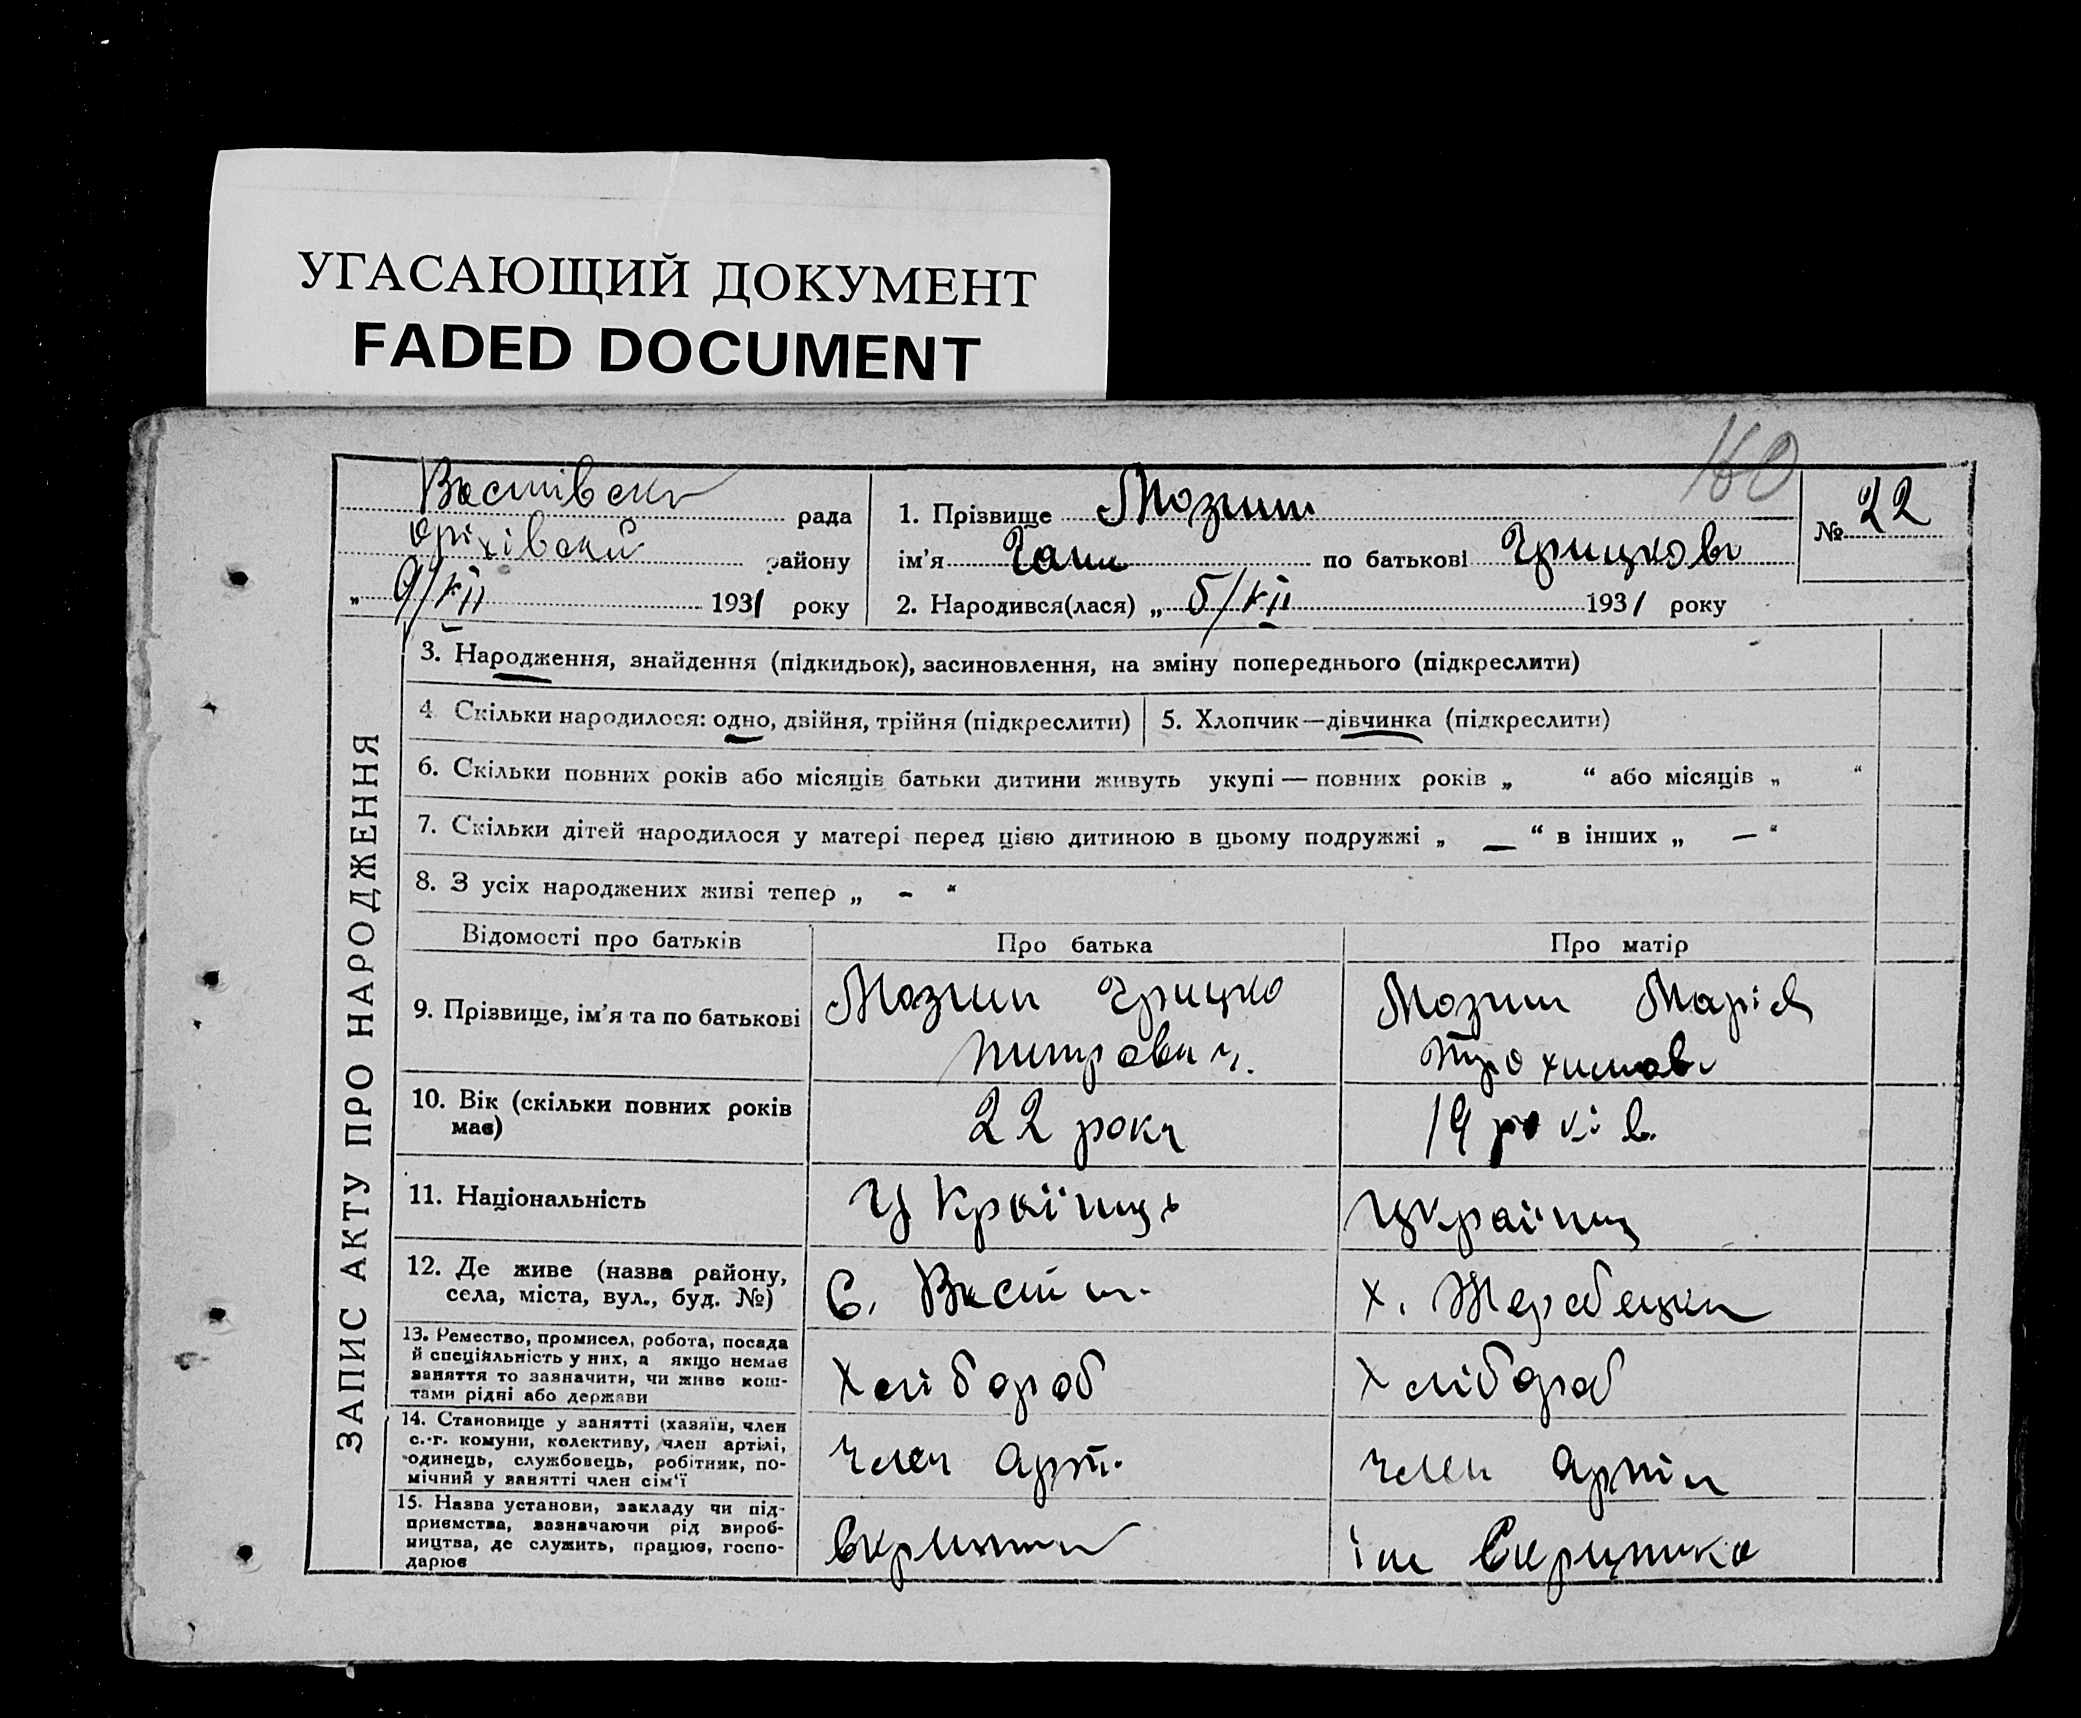 УГАСАЮЩИЙ ДОКУМЕНТ
FADED DOCUMENT
160
рада
Оріхівський району
„ 9/XII 1931 року
1. Прізвище Мозгин
№ 22
ім'я по батькові Грицков
2. Народився(лася) „ 5/XII 1931 року
ЗАПИС АКТУ ПРО НАРОДЖЕННЯ
3. Народження, знайдення (підкидьок), засиновлення, на зміну попереднього (підкреслити)
4. Скільки народилося: одно, двійня, трійня (підкреслити)
5. Хлопчик—дівчинка (підкреслити)
6. Скільки повних років або місяців батьки дитини живуть укупі — повних років „ “ або місяців „ “
7. Скільки дітей народилося у матері перед цією дитиною в цьому подружжі „ — “ в інших „ — “
8. З усіх народжених живі тепер „ - “
Відомості про батьків
Про батька
Про матір
9. Прізвище, ім'я та по батькові
Мозгин Грицко
Питрович.
Мозгин Марія
Трохимов
10. Вік (скільки повних років
має)
22 роки
19 років.
11. Національність
Українць
Україн
12. Де живе (назва району,
села, міста, вул., буд. №)
С.
х. Жеребецки
13. Ремество, промисел, робота, посада
й спеціяльність у них, а якщо немає
заняття то зазначити, чи живе кош-
тами рідні або держави
Хлібороб
Хлібороб
14. Становище у занятті (хазяїн, член
с.-г. комуни, колективу, член артілі,
одинець, службовець, робітник, по-
мічний у занятті член сім'ї
член арт.
член артіл
15. Назва установи, закладу чи під-
приємства, зазначаючи рід вироб-
ництва, де служить, працює, госпо-
дарює
ім Скрипика